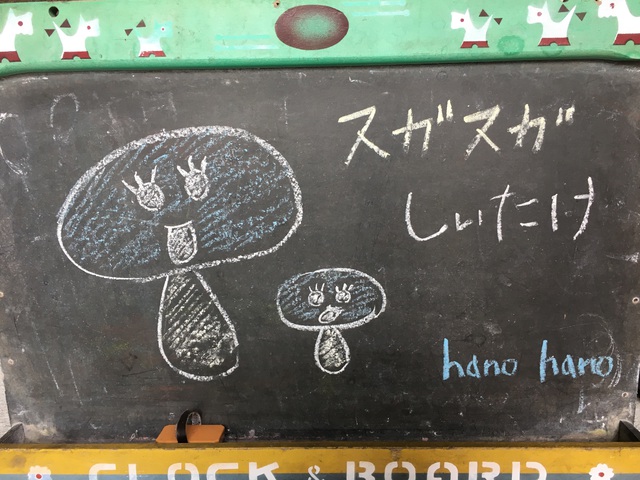 スガスガ
しいたけ
hano hano
CLOCK & BOARD